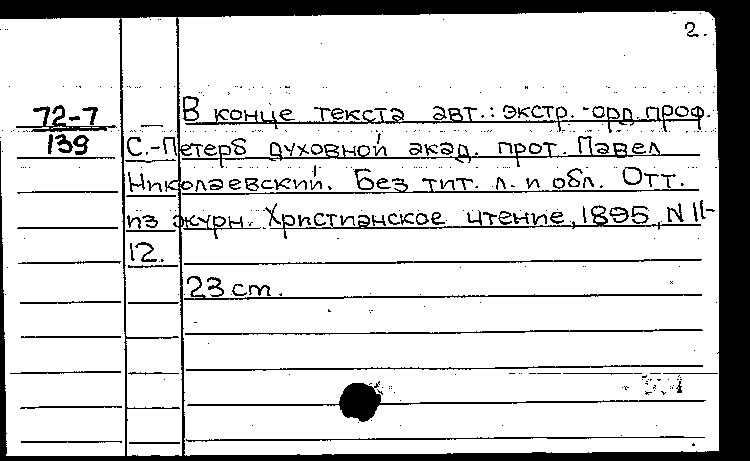 2.
72-7
139
В конце текста авт.: экстр.-орд. проф.
С.-Петерб духовной акад. прот. Павел
Николаевский. Без тит. л. и обл. Отт.
из журн. Христианское чтение, 1895, N 11-
12.
23 cm.